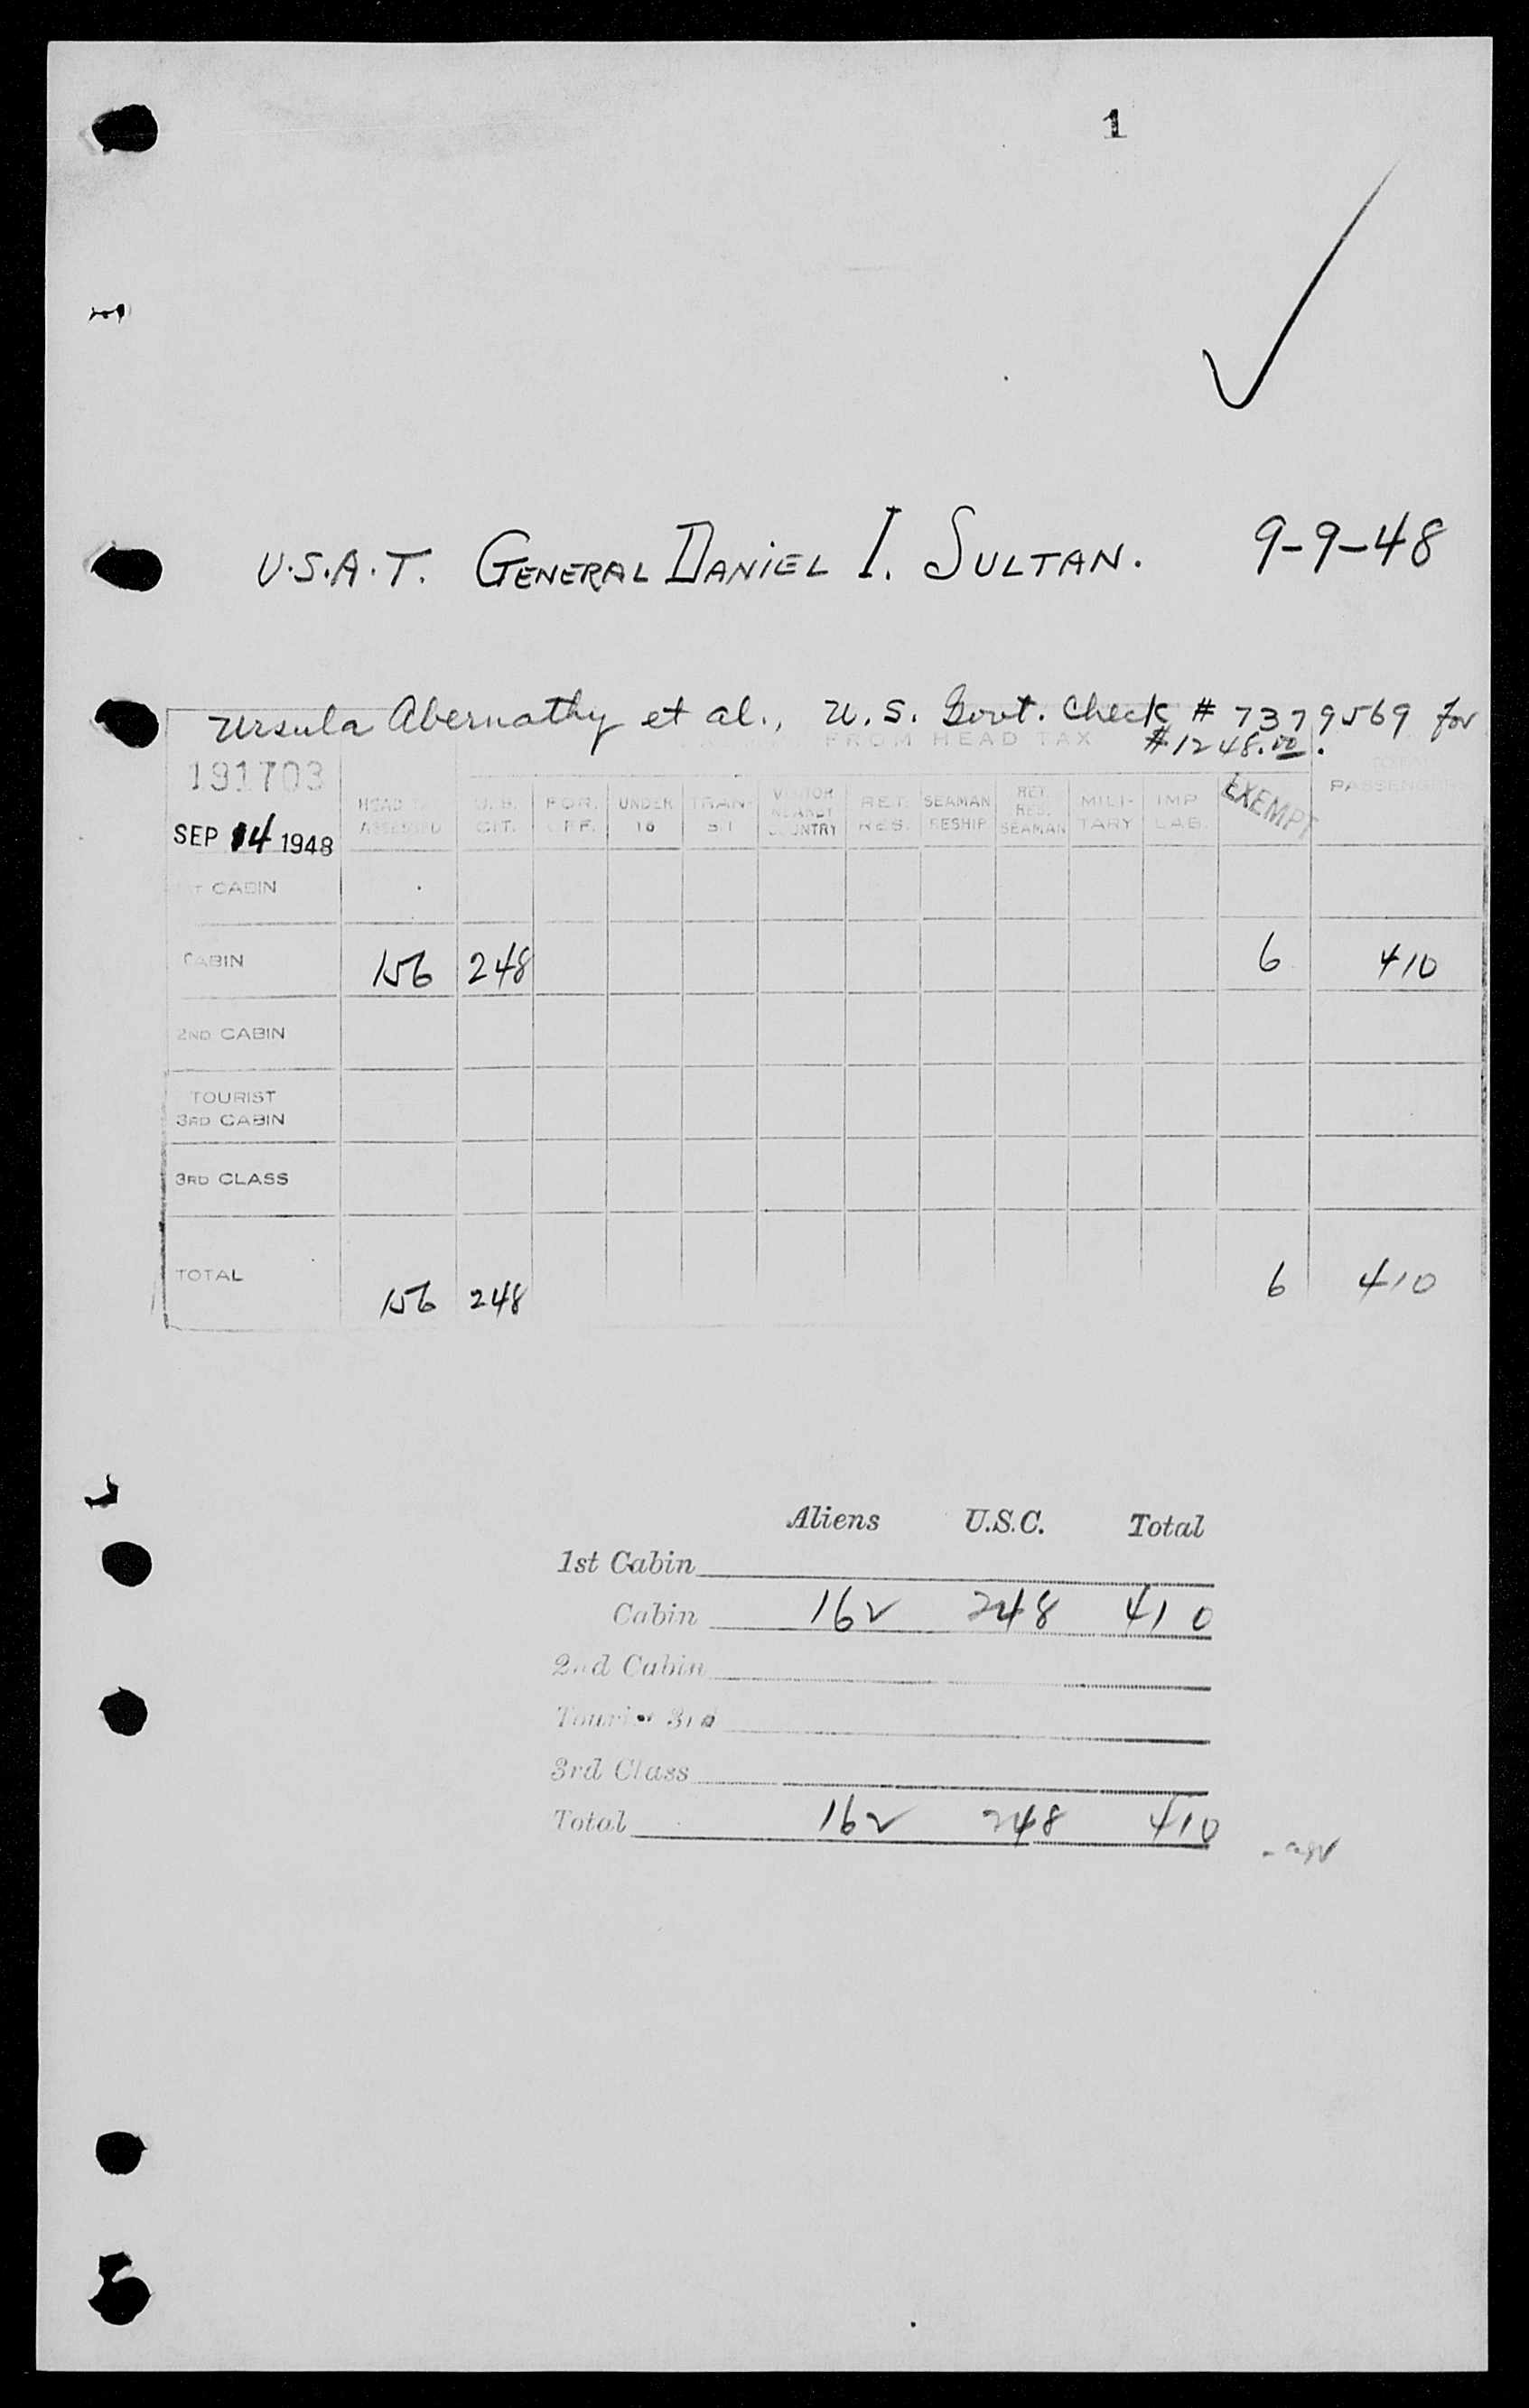 1
U.S.A.T. GENERAL DANIEL I. SULTAN. 9-9-48
Ursula Abernathy et al., U.S. Govt. Check # 7379569 for
FROM HEAD TAX $1248.00.
191703
SEP 14 1948
HEAD ASSESSED U.S. CIT. FOR. OFF. UNDER 16 TRANSIT VISITOR COUNTRY RET. RES. SEAMAN RESHIP RET. RES. SEAMAN MILITARY IMP. LAB. EXEMPT PASSENGERS
CABIN
CABIN 156 248 6 410
2ND CABIN
TOURIST
3RD CABIN
3RD CLASS
TOTAL 156 248 6 410
Aliens U.S.C. Total
1st Cabin
Cabin 162 248 410
2nd Cabin
Tourist 3rd
3rd Class
Total 162 248 410